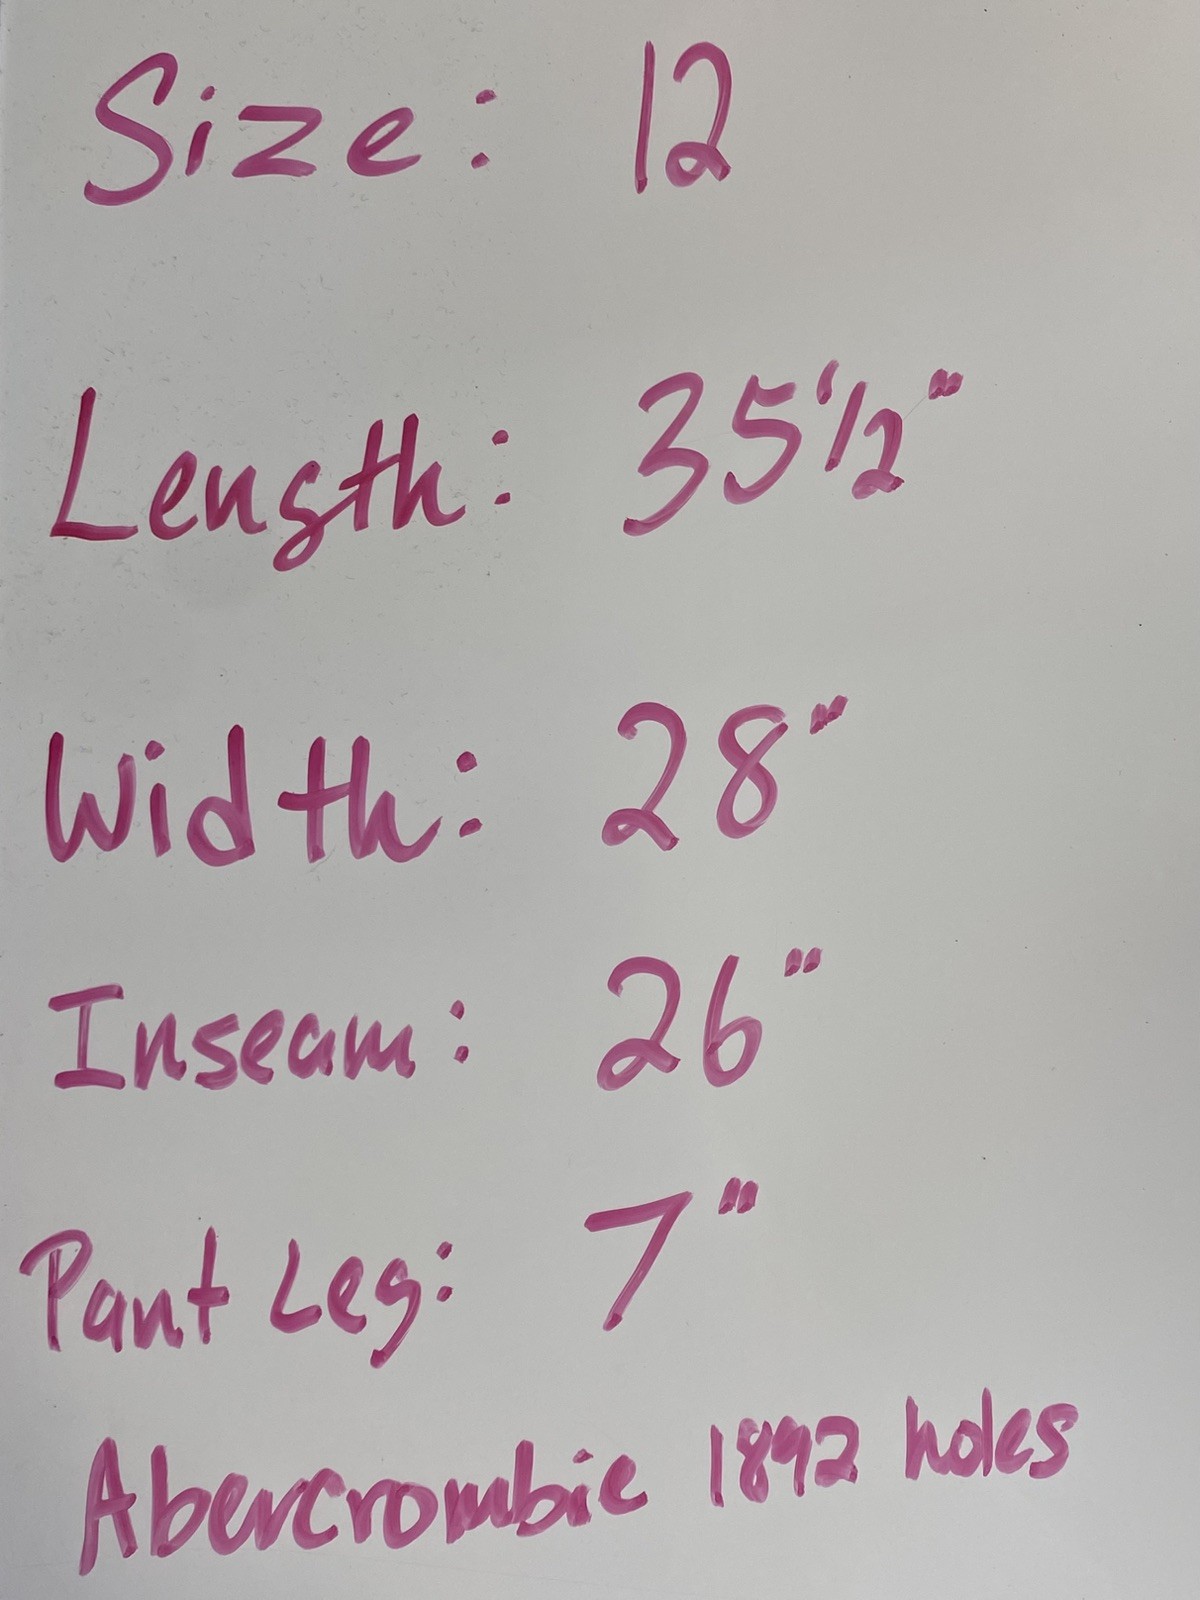 Size: 12
Length: 35 1/2"
Width: 28"
Inseam: 26"
Pant Leg: 7"
Abercrombie 1892 holes